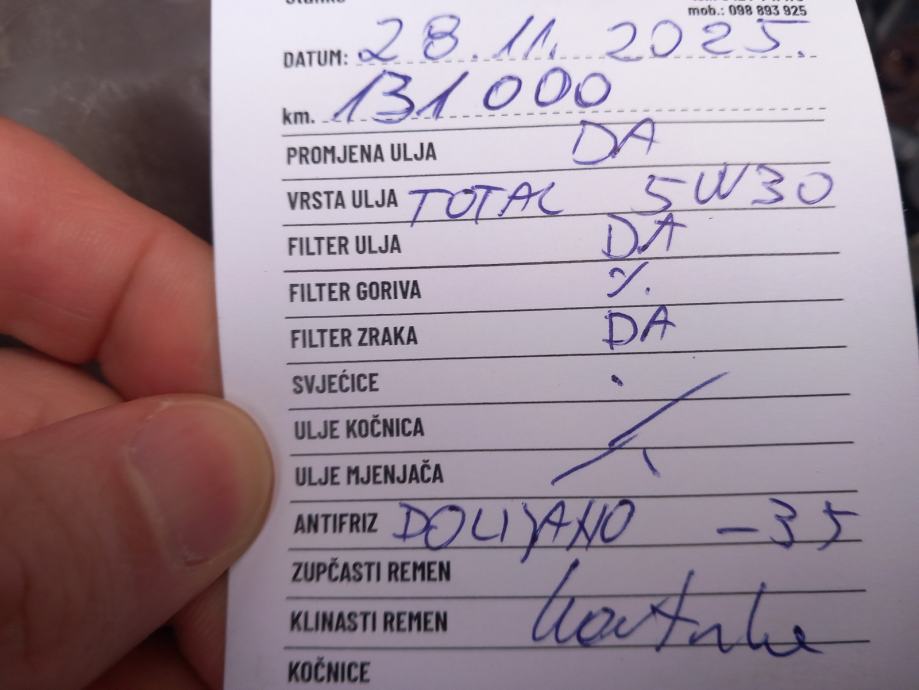 mob.: 098 893 925
DATUM: 28.11.2025.
km. 131000
PROMJENA ULJA DA
VRSTA ULJA TOTAL 5W30
FILTER ULJA DA
FILTER GORIVA %.
FILTER ZRAKA DA
SVJEĆICE
ULJE KOČNICA
ULJE MJENJAČA
ANTIFRIZ DOLIJANO -35
ZUPČASTI REMEN
KLINASTI REMEN
KOČNICE